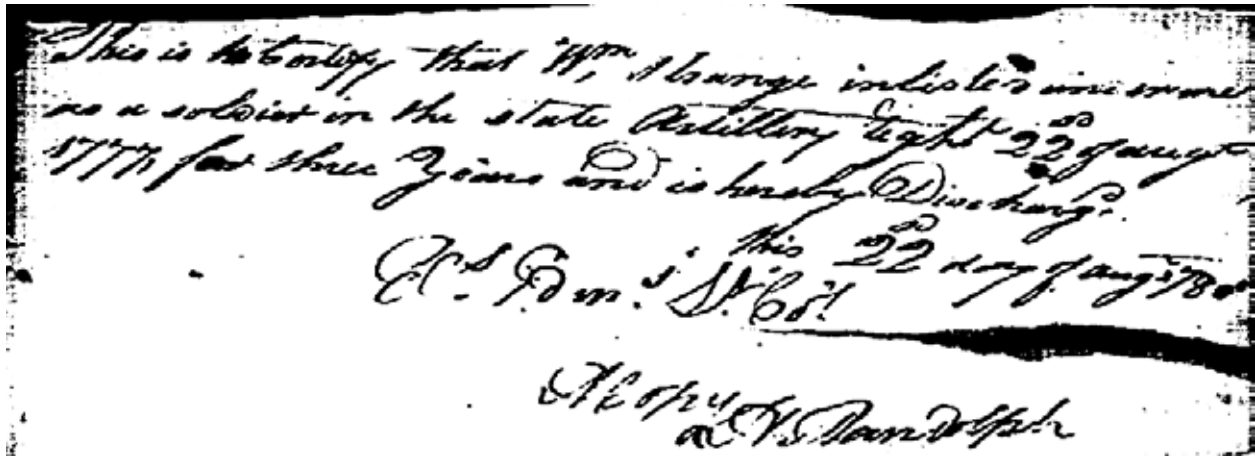 This is to Certify that Wm Strange inlisted
as a soldier in the state Artillery 22d of augt
1777, for three Years and is hereby Discharg.
this 22d day of augst 1780
Es. Edm.s Lt. Col.
A Copy
H. Randolph